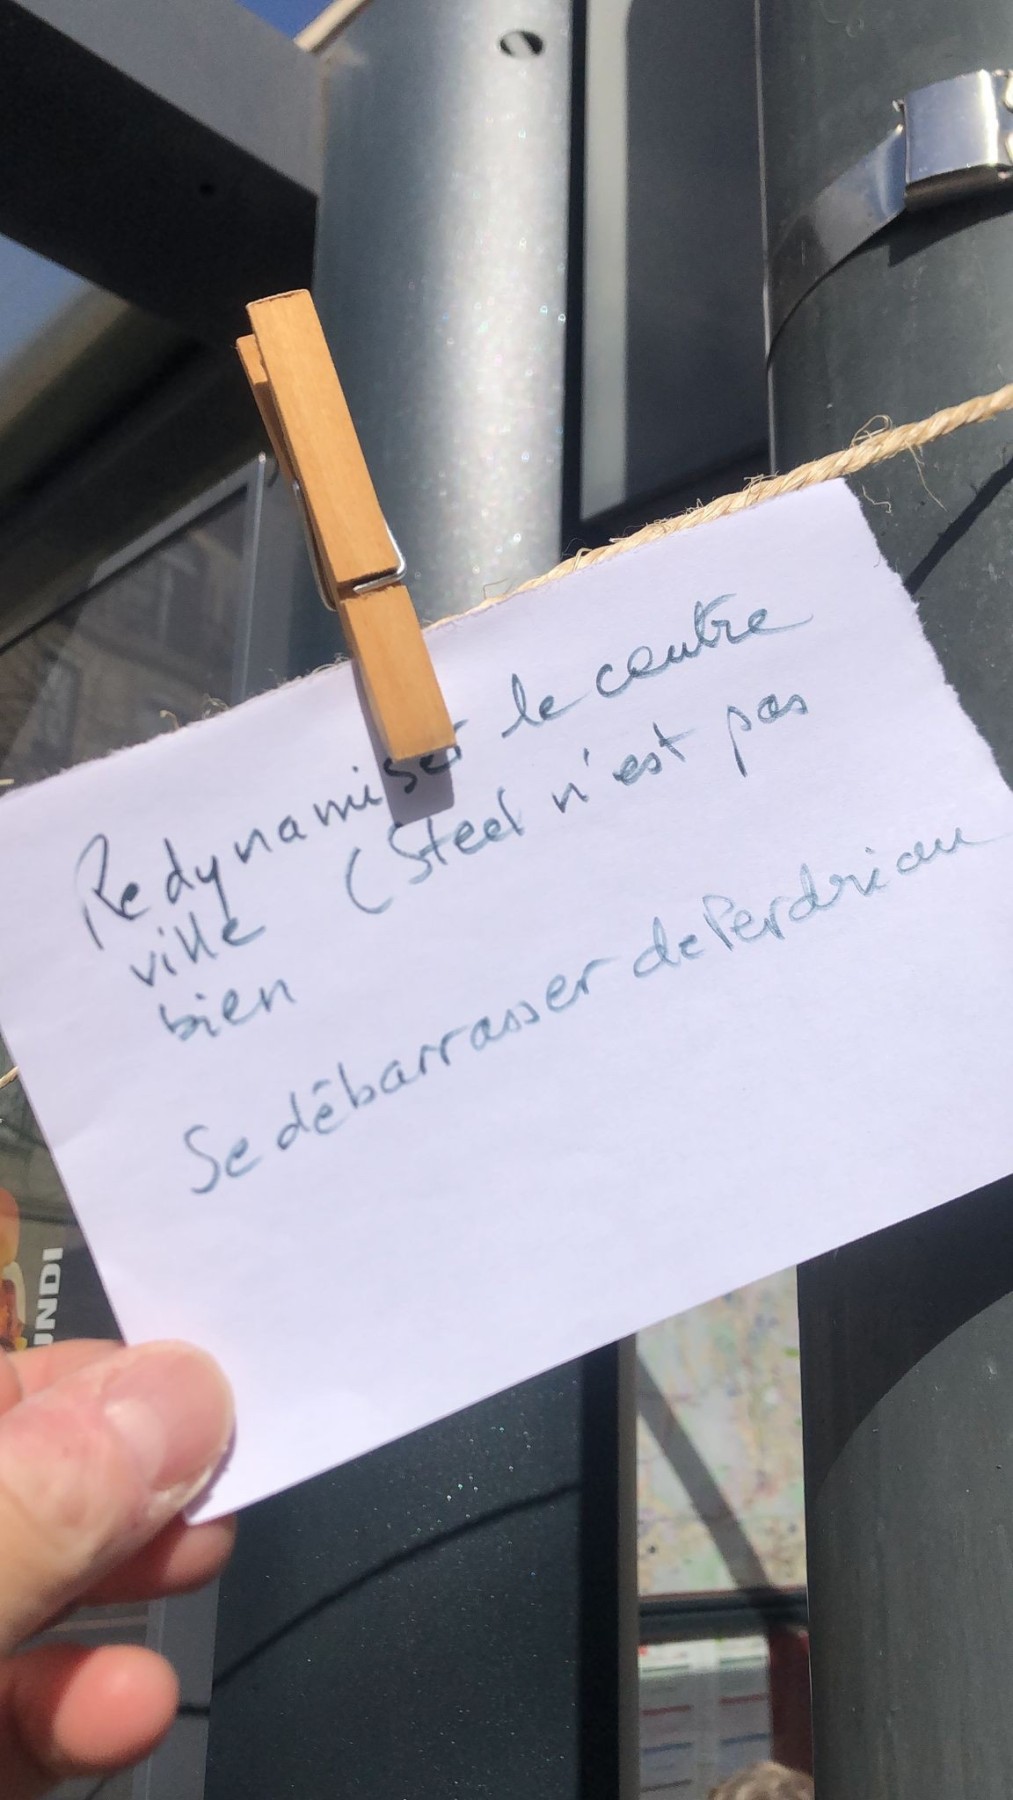 Redynamiser le centre
ville (Steel n'est pas
bien
Se débarrasser de Perdriau
UNDI